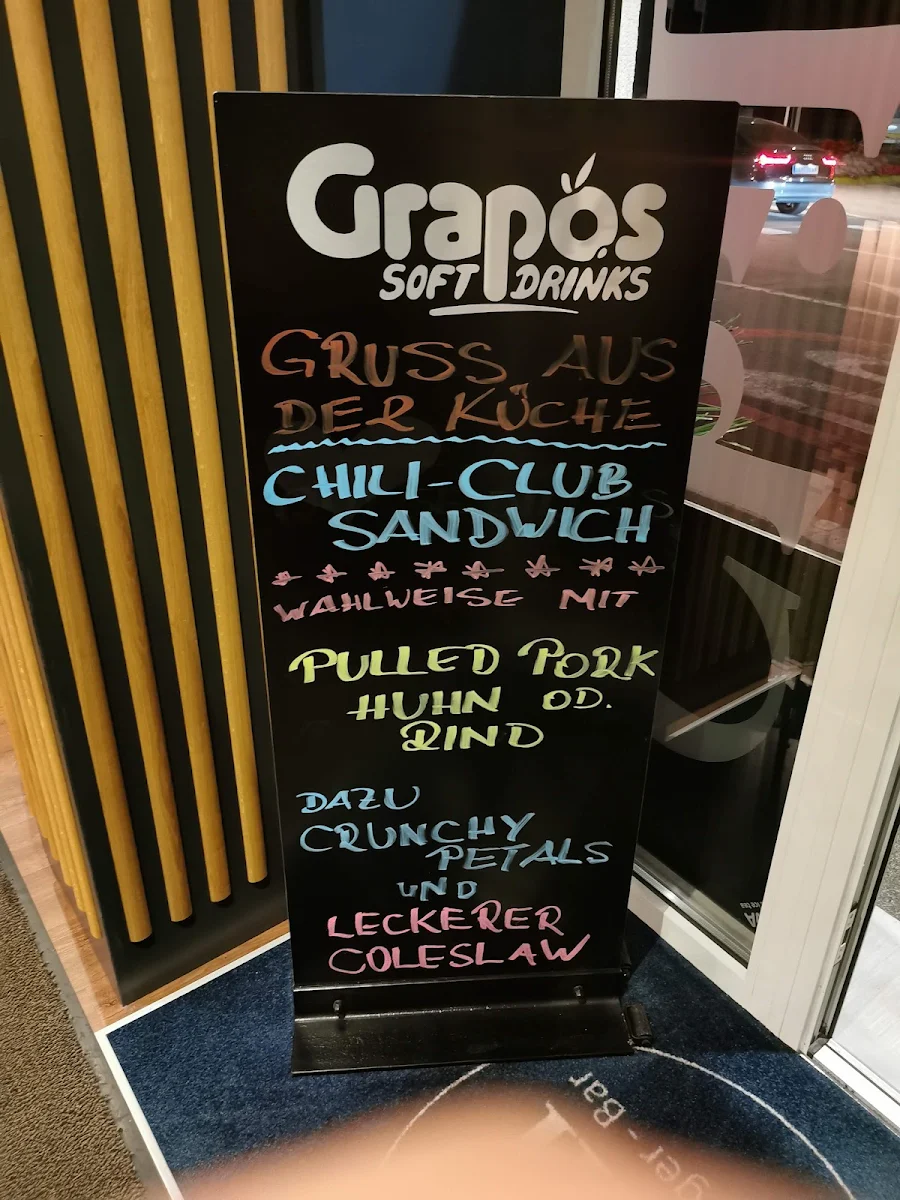 Grapos
SOFT DRINKS
GRUSS AUS
DER KÜCHE
CHILI-CLUB
SANDWICH
WAHLWEISE MIT
PULLED PORK
HUHN OD.
RIND
DAZU
CRUNCHY
PETALS
UND
LECKERER
COLESLAW
ger-Bar